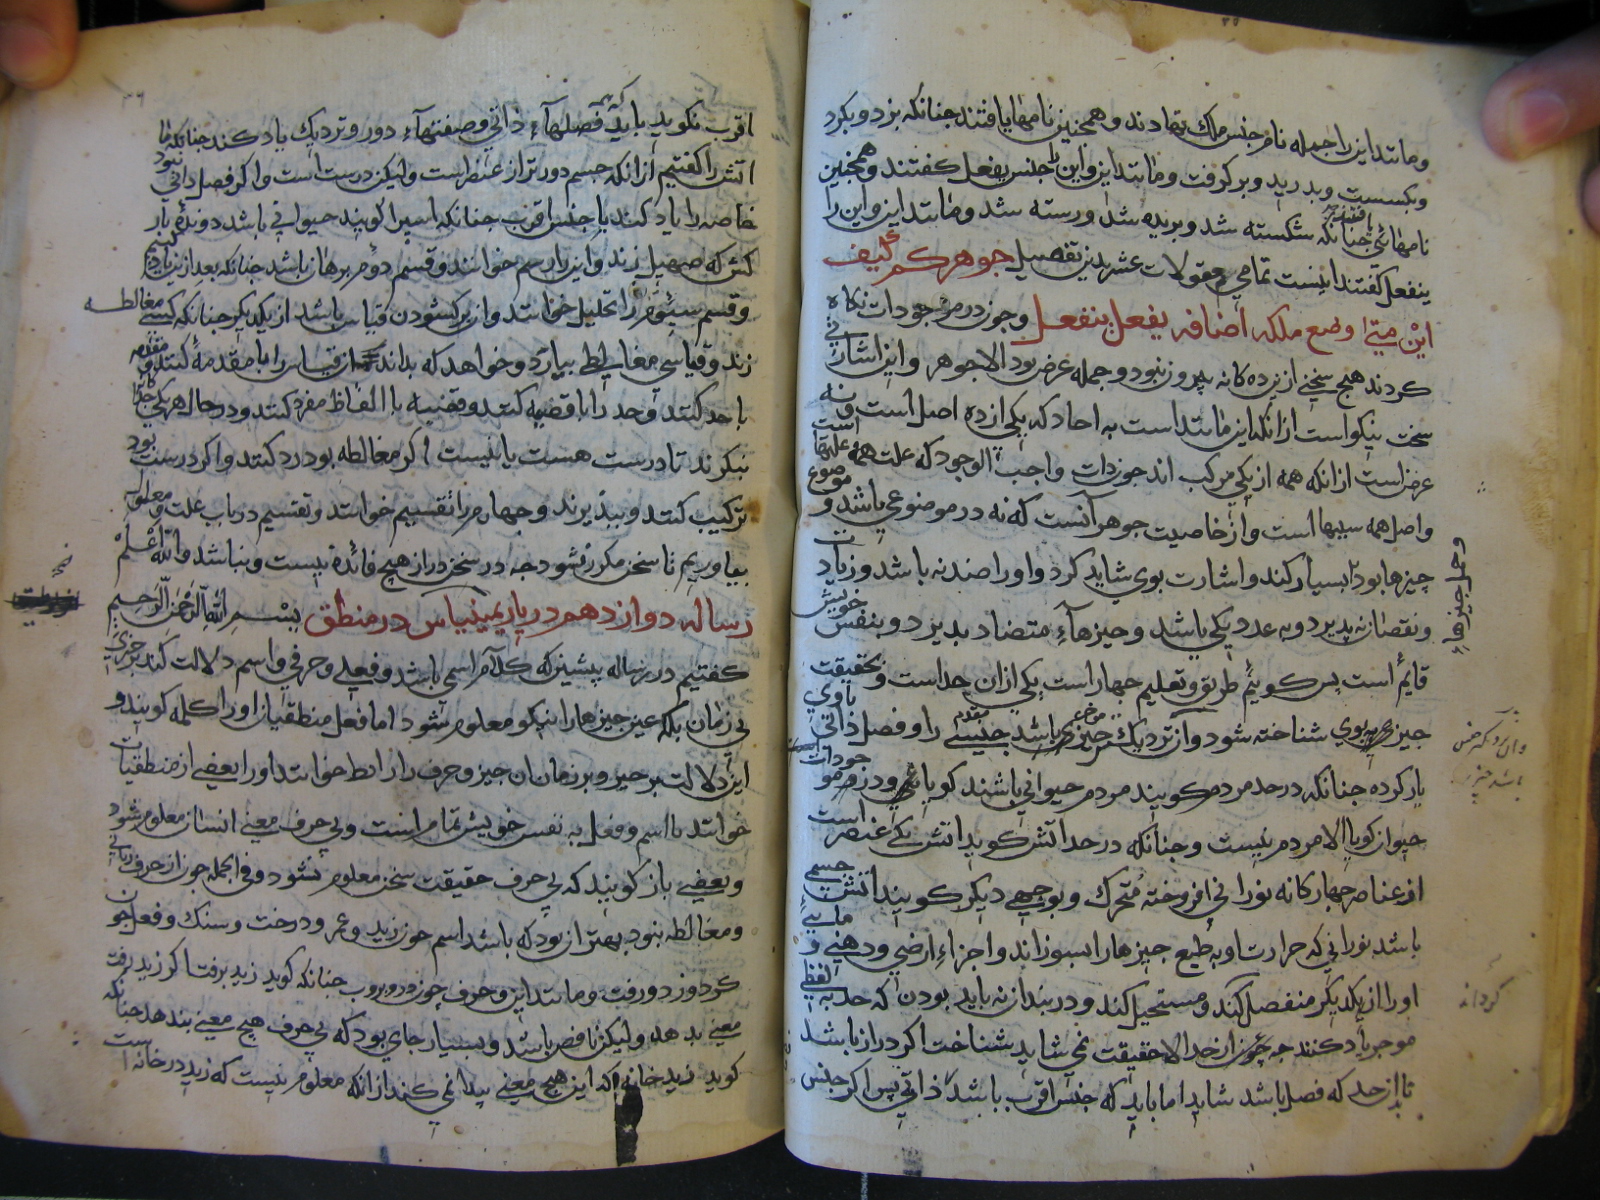 وماننداین را جمله نام جنس ملک نهادند و همچنین نامها یافتند چنانکه بزد و ببرد
و بکسست و بدرید و برگرفت و مانند این و این را جنس یفعل کفتند و همچنین
نامهائی چنانکه شکسته شد و بریده شد و رسته شد و مانند این و این را
ینفعل کفتند اینست تمامی مقولات عشر بدین تفصیل جوهر کم کیف
این متی وضع ملکه اضافه یفعل ینفعل و چون در موجودات نکاه
کردند هیچ سخنی ازین ده کانه بیرون نبود و جمله عرض بود الا جوهر و این اشارتی
سخت نیکو است از انکه این مانند است به احاد که یکی از ده اصل است و نه
عرض است از انکه همه از یکی مرکب اند چون ذات واجب الوجود که علت همه علتها است
و اصل همه سببها است و از خاصیت جوهر آنست که نه در موضوعی باشد و موضوع
چیزها بود تا بسیار کند و اشارت بوی شاید کرد و او را ضد نه باشد و زیادت
و نقصان نه پذیرد و به عدد یکی باشد و چیزهاء متضاد پذیرد و بنفس خویش
قایم است پس کوییم طریق تعلیم چهار است یکی ازان حد است و بحقیقت
چیز بوی شناخته شود و آن نزدیک ترین جنسی را و فصل ذاتی باوی
یار کرده چنانکه در حد مردم کویند مردم حیوانی باشند کویا و در موجودات
حیوان کویا الا مردم نیست و چنانکه در حد آتش کویند اتش یکی عنصر است
از عناصر چهارکانه نورانی افروخته متحرک و بوجهی دیکر کویند آتش جسمی
باشد نورانی که حرارت او به طبع چیزها را بسوزاند و اجزاء ارضی و دهنی و مایی
او را از یکدیکر منفصل کند و مستحیل کند و در بند آن نه باید بودن که حد به لفظی
موجز یاد کنند چه چون از حد الا حقیقت نمی شاید شناخت اکر دراز باشد
تا از حد که فصل باشد شاید اما باید که جنس اقرب باشد ذاتی پس اکر جنس
اقرب نکوید باید که همه فصلهاء ذاتی و صفتهاء دور و نزدیک یاد کند چنانکه ما
آتش را کفتیم از انکه جسم دورتر از عنصر است ولیکن درست است و اکر فصل ذاتی نبود
خاصه را یاد کنند با جنس اقرب چنانکه اسپ را کویند حیوانی باشد دونده بار
کش که صهیل زند و این را رسم خوانند و قسم دوم برهان باشد چنانکه بعد ازین یاد کنیم
و قسم سیوم را تحلیل خوانند و ان برکشودن قیاس باشد از یکدیکر چنانکه کسی مغالطه
زند و قیاسی مغالط بیارد و خواهد که بداند ان قیاس را با مقدمه کنند و مقدمه
با حد کنند و حد را با قضیه کنند و قضیه با الفاظ مفرد کنند و در حال هر یکی جدا
نبکرند تا درست هست یا نیست اکر مغالطه بود رد کنند و اکر درست بود
ترکیب کنند و بپذیرند و چهارم را تقسیم خوانند و تقسیم در باب علت و معلول
بیاوریم تا سخن مکرر نشود چه در سخن دراز هیچ فائده نیست و نباشد والله اعلم
رساله دوازدهم در باریمینیاس در منطق بسم الله الرحمن الرحیم
کفتیم در رساله پیشین که کلام اسمی باشد و فعلی و حرفی و اسم دلالت کند بر چیزی
بی زمان بلکه عین چیزها را نیکو معلوم شود اما فعل منطقیان او را کلمه کویند و
این دلالت بر چیز و بر زمان ان چیز و حرف را رابط خوانند او را بعضی از منطقیان
خوانند با اسم و فعل به نفس خویش تمام است و بی حرف معنی انسان معلوم شود
و بعضی باز کویند که بی حرف حقیقت سخن معلوم نشود و فی الجمله چون از حرف
و مغالطه نبود بهتر از بود که باشد اسم چون زید و عمر و درخت و سنک و فعل چون
کرد و زد و رفت و مانند این و حرف چون در و بر چنانکه کوید زید برفت اکر زید رفت
معنی بدهد ولیکن ناقص باشد و بسیار جای بود که بی حرف هیچ معنی بندهد چنانکه
کوید زید خانه که این هیچ معنی پیدا نمی کند از انکه معلوم نیست که زید در خانه است